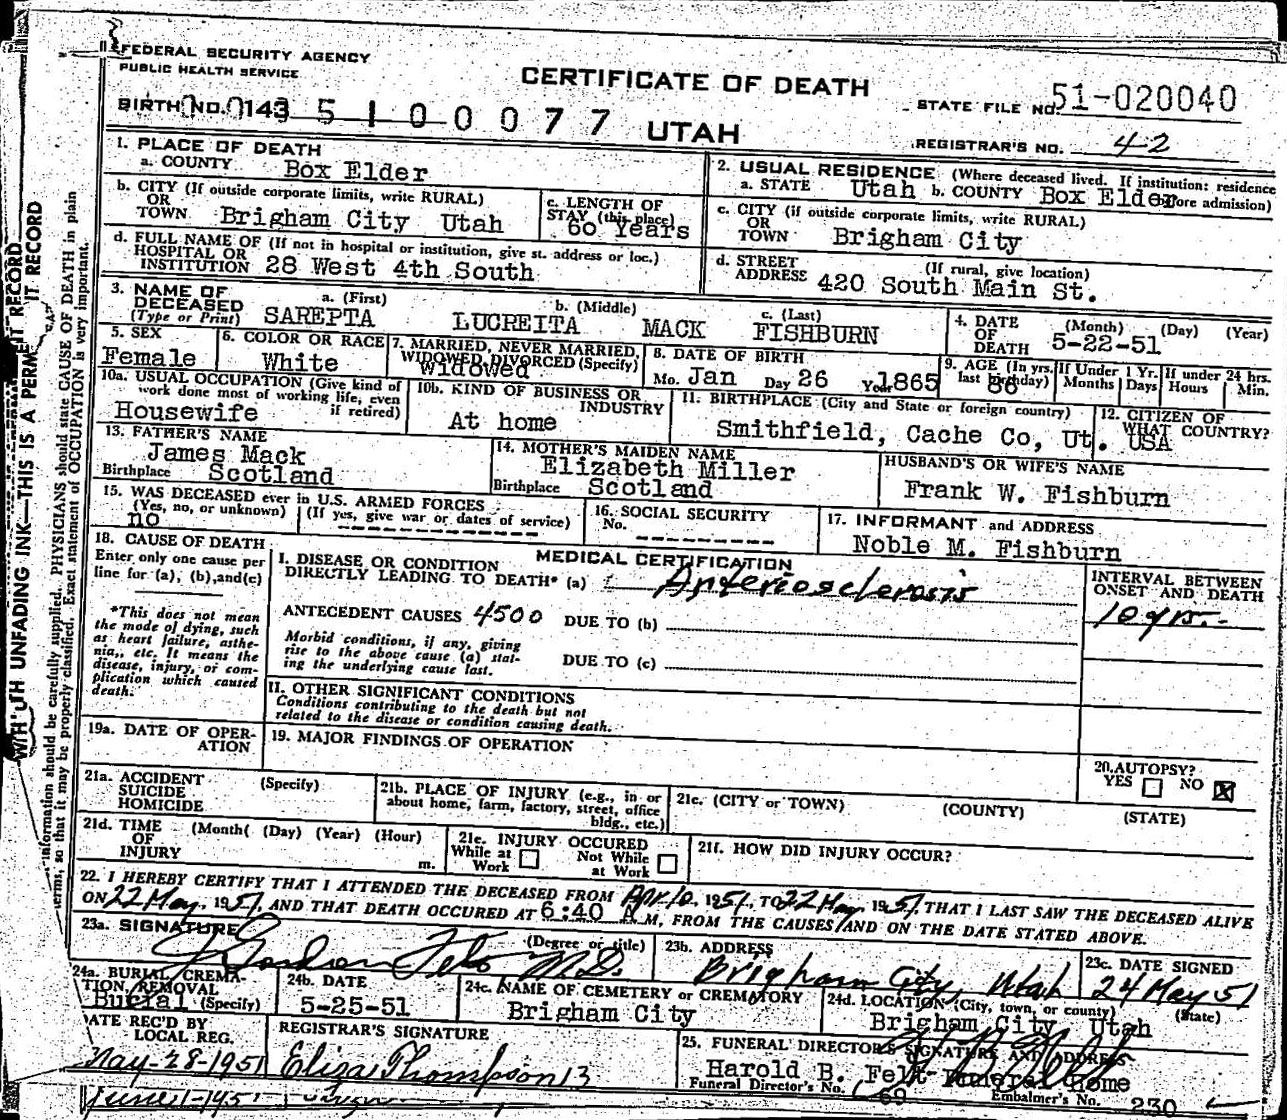 FEDERAL SECURITY AGENCY
PUBLIC HEALTH SERVICE
CERTIFICATE OF DEATH
STATE FILE NO. 51-020040
BIRTH NO. 0143 5 1 0 0 0 7 7 UTAH
REGISTRAR'S NO. 42
1. PLACE OF DEATH
a. COUNTY Box Elder
2. USUAL RESIDENCE (Where deceased lived. If institution: residence before admission)
a. STATE Utah b. COUNTY Box Elder
b. CITY (If outside corporate limits, write RURAL)
OR
TOWN Brigham City Utah
c. LENGTH OF
STAY (this place)
60 Years
c. CITY (if outside corporate limits, write RURAL)
OR
TOWN Brigham City
d. FULL NAME OF (If not in hospital or institution, give st. address or loc.)
HOSPITAL OR
INSTITUTION 28 West 4th South
d. STREET (If rural, give location)
ADDRESS 420 South Main St.
3. NAME OF
DECEASED
(Type or Print)
a. (First) b. (Middle) c. (Last)
SAREPTA LUCREITA MACK FISHBURN
4. DATE (Month) (Day) (Year)
OF
DEATH 5-22-51
5. SEX
Female
6. COLOR OR RACE
White
7. MARRIED, NEVER MARRIED,
WIDOWED, DIVORCED (Specify)
Widowed
8. DATE OF BIRTH
Mo. Jan Day 26 Year 1865
9. AGE (In yrs. last birthday)
If Under 1 Yr.
Months Days
If under 24 hrs.
Hours Min.
10a. USUAL OCCUPATION (Give kind of
work done most of working life, even
if retired)
Housewife
10b. KIND OF BUSINESS OR
INDUSTRY
At home
11. BIRTHPLACE (City and State or foreign country)
Smithfield, Cache Co, Ut.
12. CITIZEN OF
WHAT COUNTRY?
USA
13. FATHER'S NAME
James Mack
Birthplace Scotland
14. MOTHER'S MAIDEN NAME
Elizabeth Miller
Birthplace Scotland
HUSBAND'S OR WIFE'S NAME
Frank W. Fishburn
15. WAS DECEASED ever in U.S. ARMED FORCES
(Yes, no, or unknown) (If yes, give war or dates of service)
no
16. SOCIAL SECURITY
No.
17. INFORMANT and ADDRESS
Noble M. Fishburn
18. CAUSE OF DEATH
Enter only one cause per
line for (a), (b), and (c)
*This does not mean
the mode of dying, such
as heart failure, asthe-
nia,, etc. It means the
disease, injury, or com-
plication which caused
death.
MEDICAL CERTIFICATION
I. DISEASE OR CONDITION
DIRECTLY LEADING TO DEATH* (a) Arteriosclerosis
INTERVAL BETWEEN
ONSET AND DEATH
10 yrs.
ANTECEDENT CAUSES 4500 DUE TO (b)
Morbid conditions, if any, giving
rise to the above cause (a) stat-
ing the underlying cause last.
DUE TO (c)
II. OTHER SIGNIFICANT CONDITIONS
Conditions contributing to the death but not
related to the disease or condition causing death.
19a. DATE OF OPER-
ATION
19. MAJOR FINDINGS OF OPERATION
20. AUTOPSY?
YES NO X
21a. ACCIDENT (Specify)
SUICIDE
HOMICIDE
21b. PLACE OF INJURY (e.g., in or
about home, farm, factory, street, office
bldg., etc.)
21c. (CITY or TOWN) (COUNTY) (STATE)
21d. TIME (Month( (Day) (Year) (Hour)
OF
INJURY m.
21e. INJURY OCCURED
While at Work Not While at Work
21f. HOW DID INJURY OCCUR?
22. I HEREBY CERTIFY THAT I ATTENDED THE DECEASED FROM Apr 10, 1951, TO 22 May 1951, THAT I LAST SAW THE DECEASED ALIVE
ON 22 May, 1951, AND THAT DEATH OCCURED AT 6:40 A M, FROM THE CAUSES AND ON THE DATE STATED ABOVE.
23a. SIGNATURE (Degree or title)
Gordon Felt M.D.
23b. ADDRESS
Brigham City, Utah
23c. DATE SIGNED
24 May 51
24a. BURIAL, CREMA-
TION, REMOVAL
Burial (Specify)
24b. DATE
5-25-51
24c. NAME OF CEMETERY or CREMATORY
Brigham City
24d. LOCATION (City, town, or county) (State)
Brigham City Utah
DATE REC'D BY
LOCAL REG.
May-28-1951
REGISTRAR'S SIGNATURE
Eliza Thompson
25. FUNERAL DIRECTORS SIGNATURE AND ADDRESS
Harold B. Felt Funeral Home
Funeral Director's No. 69 Embalmer's No. 230
June 1-1951
WITH UNFADING INK—THIS IS A PERMANENT RECORD
information should be carefully supplied. PHYSICIANS should state CAUSE OF DEATH in plain
terms, so that it may be properly classified. Exact statement of OCCUPATION is very important.